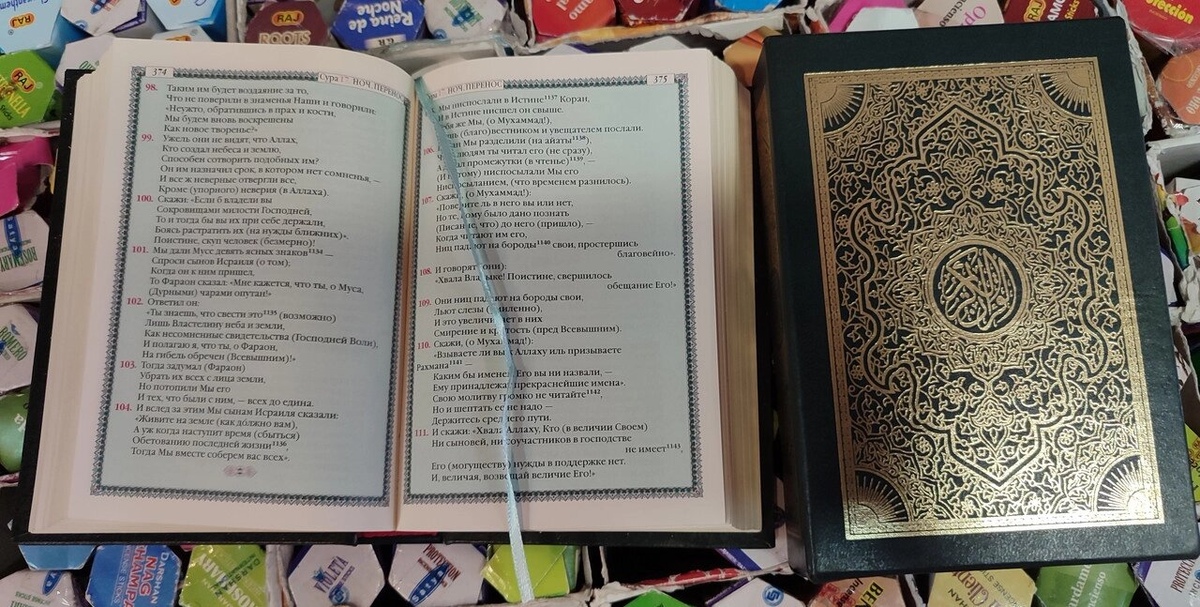 RAJ
ROOTS
Reina de
Noche
RAJ
RAJ
374
Сура 17 НОЧ. ПЕРЕНОС
98. Таким им будет воздаяние за то,
Что не поверили в знаменья Наши и говорили:
«Неужто, обратившись в прах и кости,
Мы будем вновь воскрешены
Как новое творенье?»
99. Ужель они не видят, что Аллах,
Кто создал небеса и землю,
Способен сотворить подобных им?
Он им назначил срок, в котором нет сомненья, —
И все ж неверные отвергли все,
Кроме (упорного) неверия (в Аллаха).
100. Скажи: «Если б владели вы
Сокровищами милости Господней,
То и тогда бы вы их при себе держали,
Боясь растратить их (на нужды ближних)».
Поистине, скуп человек (безмерно)!
101. Мы дали Мусе девять ясных знаков1134 —
Спроси сынов Исраиля (о том),
Когда он к ним пришел,
То Фараон сказал: «Мне кажется, что ты, о Муса,
(Дурными) чарами опутан!»
102. Ответил он:
«Ты знаешь, что свести это1135 (возможно)
Лишь Властелину неба и земли,
Как несомненные свидетельства (Господней Воли),
И полагаю я, что ты, о Фараон,
На гибель обречен (Всевышним)!»
103. Тогда задумал (Фараон)
Убрать их всех с лица земли,
Но потопили Мы его
И тех, что были с ним, — всех до едина.
104. И вслед за этим Мы сынам Исраиля сказали:
«Живите на земле (как должно вам),
А уж когда наступит время (сбыться)
Обетованию последней жизни1136,
Тогда Мы вместе соберем вас всех».
НОЧ. ПЕРЕНОС
375
Мы ниспослали в Истине1137 Коран,
И в Истине нисшел он свыше.
же Мы, (о Мухаммад!),
(благо)вестником и увещателем послали.
106. Мы разделили (на айаты1138),
людям ты читал его (не сразу),
промежутки (в чтенье)1139, —
ниспослали Мы его
Ниспосыланием, (что временем разнилось).
107. Скажи, (о Мухаммад!):
«Поверите ль в него вы или нет,
Но те, кому было дано познать
(Писание, что) до него (пришло), —
Когда читают им его,
Ниц падают на бороды1140 свои, простершись
благоговейно».
108. И говорят (они):
«Хвала Владыке! Поистине, свершилось
обещание Его!»
109. Они ниц падают на бороды свои,
Льют слезы (умиленно),
И это увеличивает в них
Смирение и кротость (пред Всевышним).
110. Скажи, (о Мухаммад!):
«Взываете ли вы к Аллаху иль призываете
Рахмана1141 —
Каким бы именем Его вы ни назвали, —
Ему принадлежат прекраснейшие имена».
Свою молитву громко не читайте1142,
Но и шептать ее не надо —
Держитесь среднего пути.
111. И скажи: «Хвала Аллаху, Кто (в величии Своем)
Ни сыновей, ни соучастников в господстве
не имеет1143,
Его (могуществу) нужды в поддержке нет.
И, величая, возвещай величие Его!»
القرآن الكريم
DARSHAN
NAG
CHAMPA
DARSHAN
VIOLETA
PROTECTION